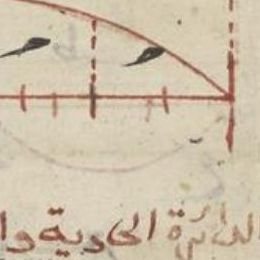 الدائرة الحادية وا